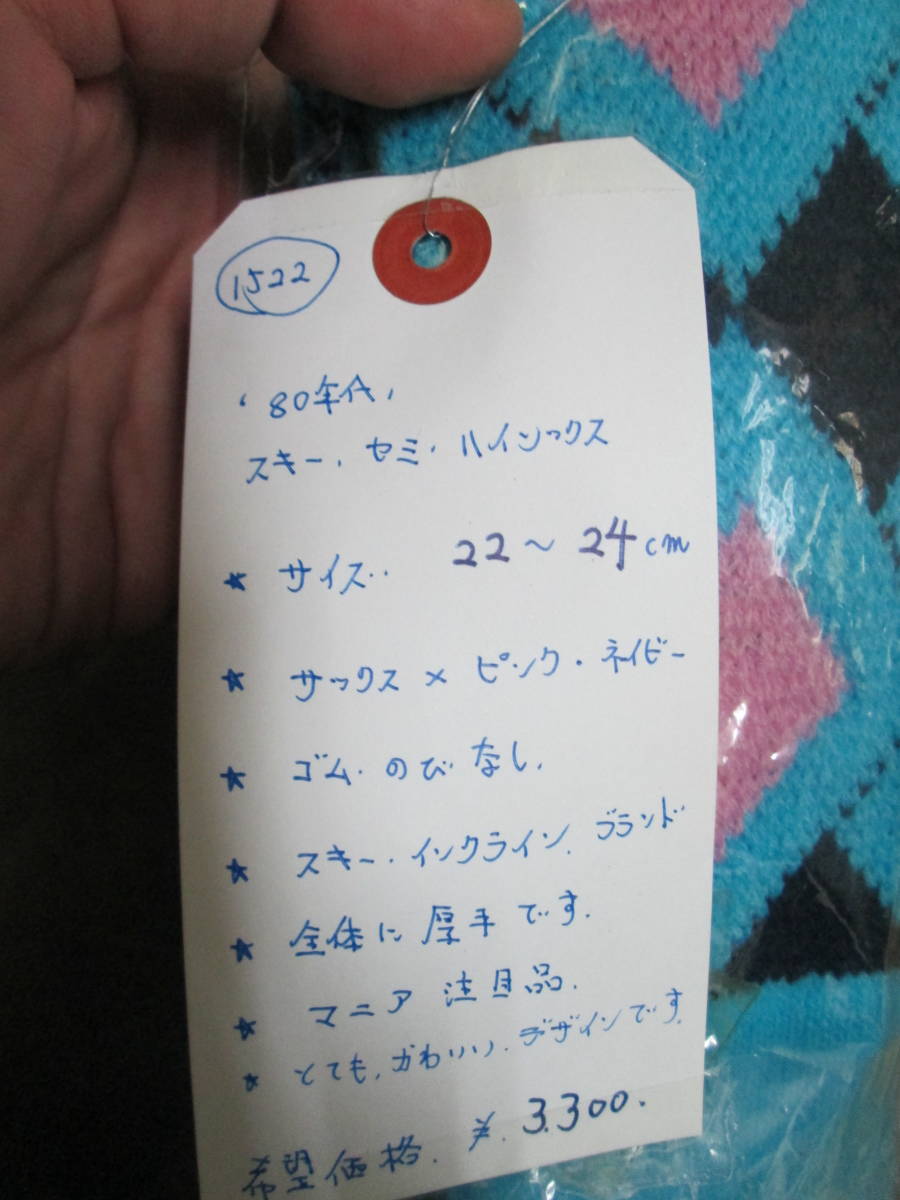 1522
'80年代,
スキー.セミ.ハイソックス
★ サイズ.. 22～24cm
★ サックス×ピンク・ネイビー
★ ゴム.のびなし.
★ スキー.インクライン.ブランド
★ 全体に厚手です.
★ マニア注目品.
★ とても.かわいい.デザインです.
希望価格.¥.3.300.